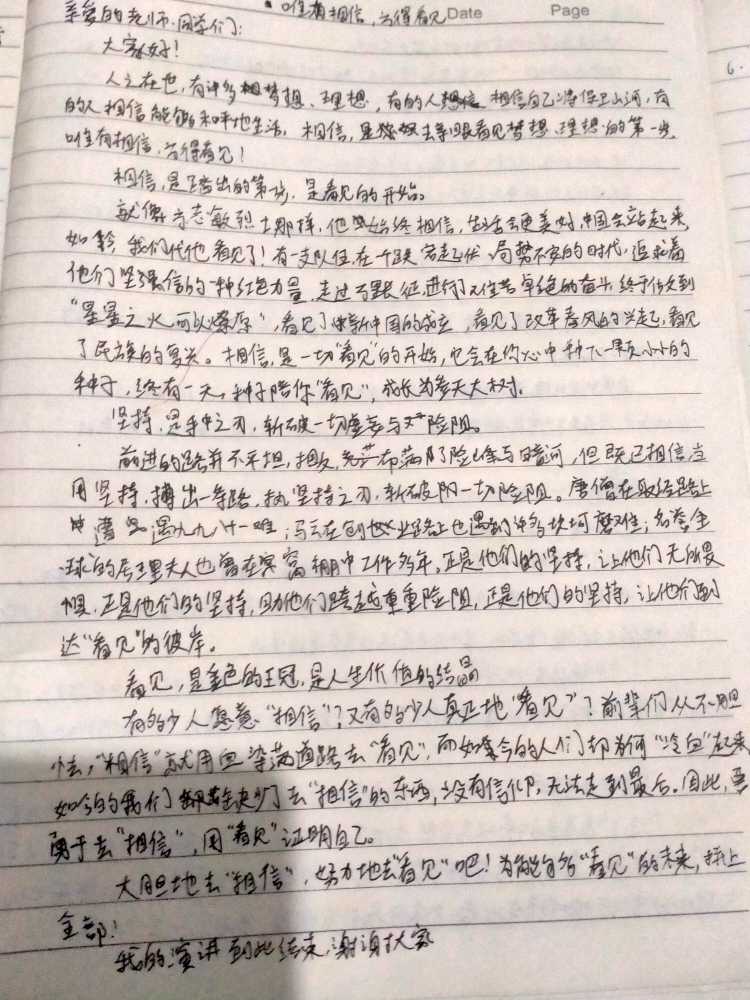 唯有相信,方得看见 Date Page
亲爱的老师、同学们:
大家好!
人之在世,有许多梦想、理想,有的人相信自己将保卫山河,有
的人相信能够和平地生活。相信,是去等眼看见梦想、理想的第一步
唯有相信,方得看见!
相信,是踏出的第一步,是看见的开始。
就像方志敏烈士那样,他始终相信,生活会更美好,中国会站起来
如今,我们代他看见了!有一支队伍,在一跌宕起伏、局势不安的时代,追求着
他们坚强信的一种红色力量,走过万里长征,进行了艰苦卓绝的奋斗,终于传文到
“星星之火,可以燎原”,看见了新中国的成立,看见了改革春风的兴起,看见
了民族的复兴。相信,是一切“看见”的开始,它会在你心中种下一颗小小的
种子,终有一天,种子陪你“看见”,成长为参天大树。
坚持,是手中之刃,斩破一切虚妄与险阻。
前进的路并不平坦,相反,布满了险峰与暗河,但既已相信,当
用坚持,搏出一条路,执坚持之刃,斩破一切险阻。唐僧在取经路上
曾遇九九八十一难;马云在创业路上也遇到许多坎坷磨难;名誉全
球的居里夫人也曾在窝棚中工作多年。正是他们的坚持,让他们无所畏
惧,正是他们的坚持,助他们跨越重重险阻,正是他们的坚持,让他们到
达“看见”的彼岸。
看见,是金色的王冠,是人生价值的结晶
有多少人愿意“相信”?又有多少人真正地“看见”?前辈们从不胆
怯,“相信”就用血染满道路去“看见”,而如今的人们却为何“冷血”起来
如今的我们缺少了去“相信”的东西,没有信仰,无法走到最后。因此,要
勇于去“相信”,用“看见”证明自己。
大胆地去“相信”,努力地去“看见”吧!为能够“看见”的未来,拼上
全部!
我的演讲到此结束,谢谢大家
6.